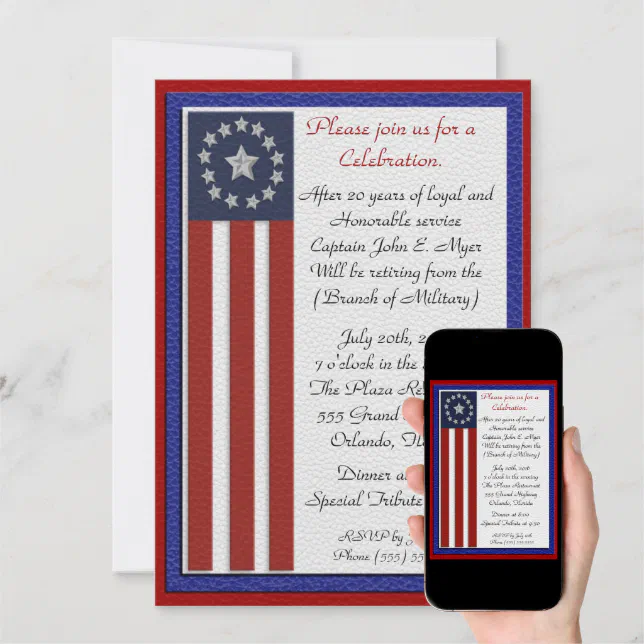 Please join us for a
Celebration.
After 20 years of loyal and
Honorable service
Captain John E. Myer
Will be retiring from the
(Branch of Military)
July 20th, 2
7 o'clock in the
The Plaza Re
555 Grand
Orlando, Fl
Dinner a
Special Tribute
RSVP by
Phone (555) 55
Please join us for a
Celebration.
After 20 years of loyal and
Honorable service
Captain, John E. Myer
Will be retiring from the
(Branch of Military)
July 20th,
7 o'clock in the evening
The Plaza Restaurant
555 Grand Highway
Orlando, Florida
Dinner at 8:00
Special Tribute at 9:30
RSVP by July
Phone (555) 555-5555